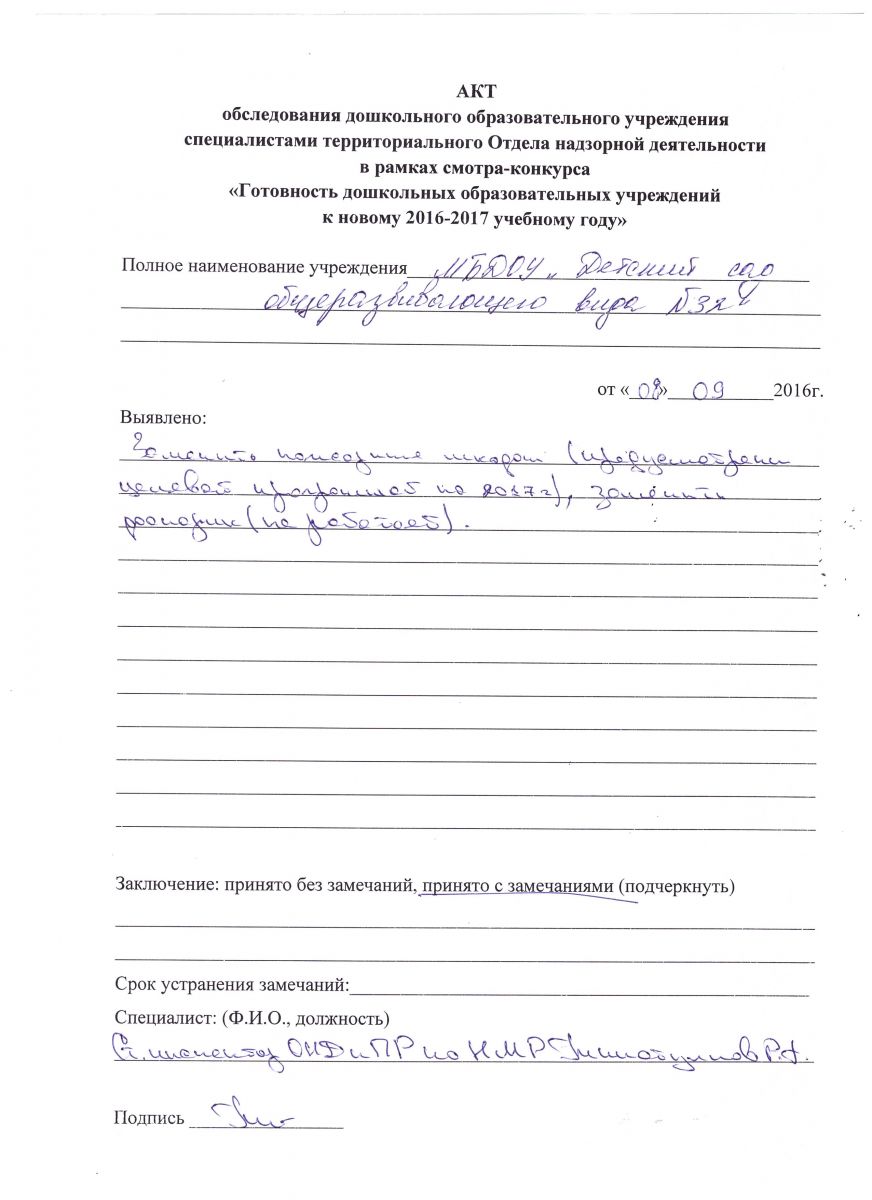 АКТ
обследования дошкольного образовательного учреждения
специалистами территориального Отдела надзорной деятельности
в рамках смотра-конкурса
«Готовность дошкольных образовательных учреждений
к новому 2016-2017 учебному году»
Полное наименование учреждения МБДОУ „Детский сад
общеразвивающего вида №32"
от «08» 09 2016г.
Выявлено:
Заменить пожарные шкафы (предусмотрены
целевой программой на 2017г), заменить
фонарик (не работает).
Заключение: принято без замечаний, принято с замечаниями (подчеркнуть)
Срок устранения замечаний:
Специалист: (Ф.И.О., должность)
Ст. инспектор ОНДиПР по НМР
Подпись